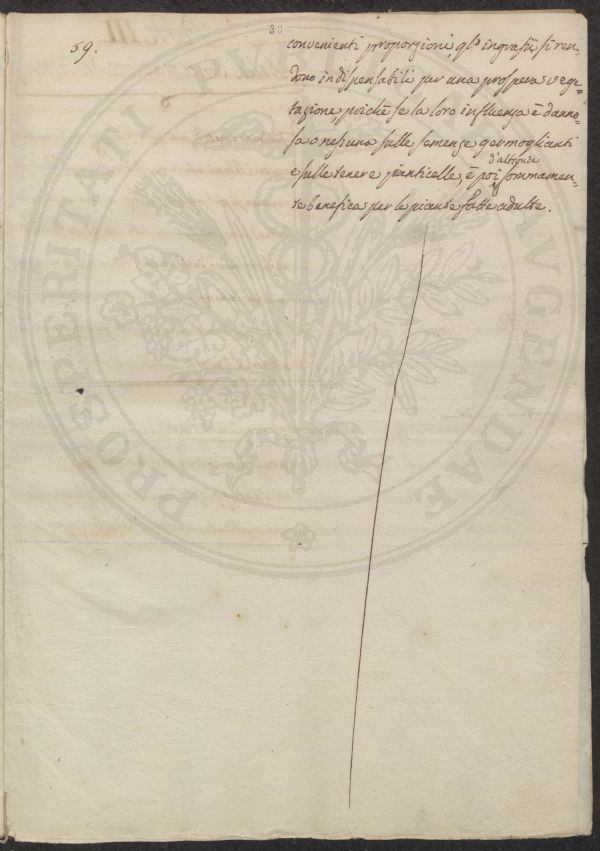 30
59.
convenienti proporzioni, gl'ingrassi si ren-
dono indispensabili per una prospera vege-
tazione, poichè se la loro influenza è danno-
sa o nessuna sulle semenze germoglianti
e sulle tenere pianticelle, è poi d'altronde sommamen-
te benefica per le piante fatte adulte.
PROSPERITATI PUBLICAE AUGENDAE